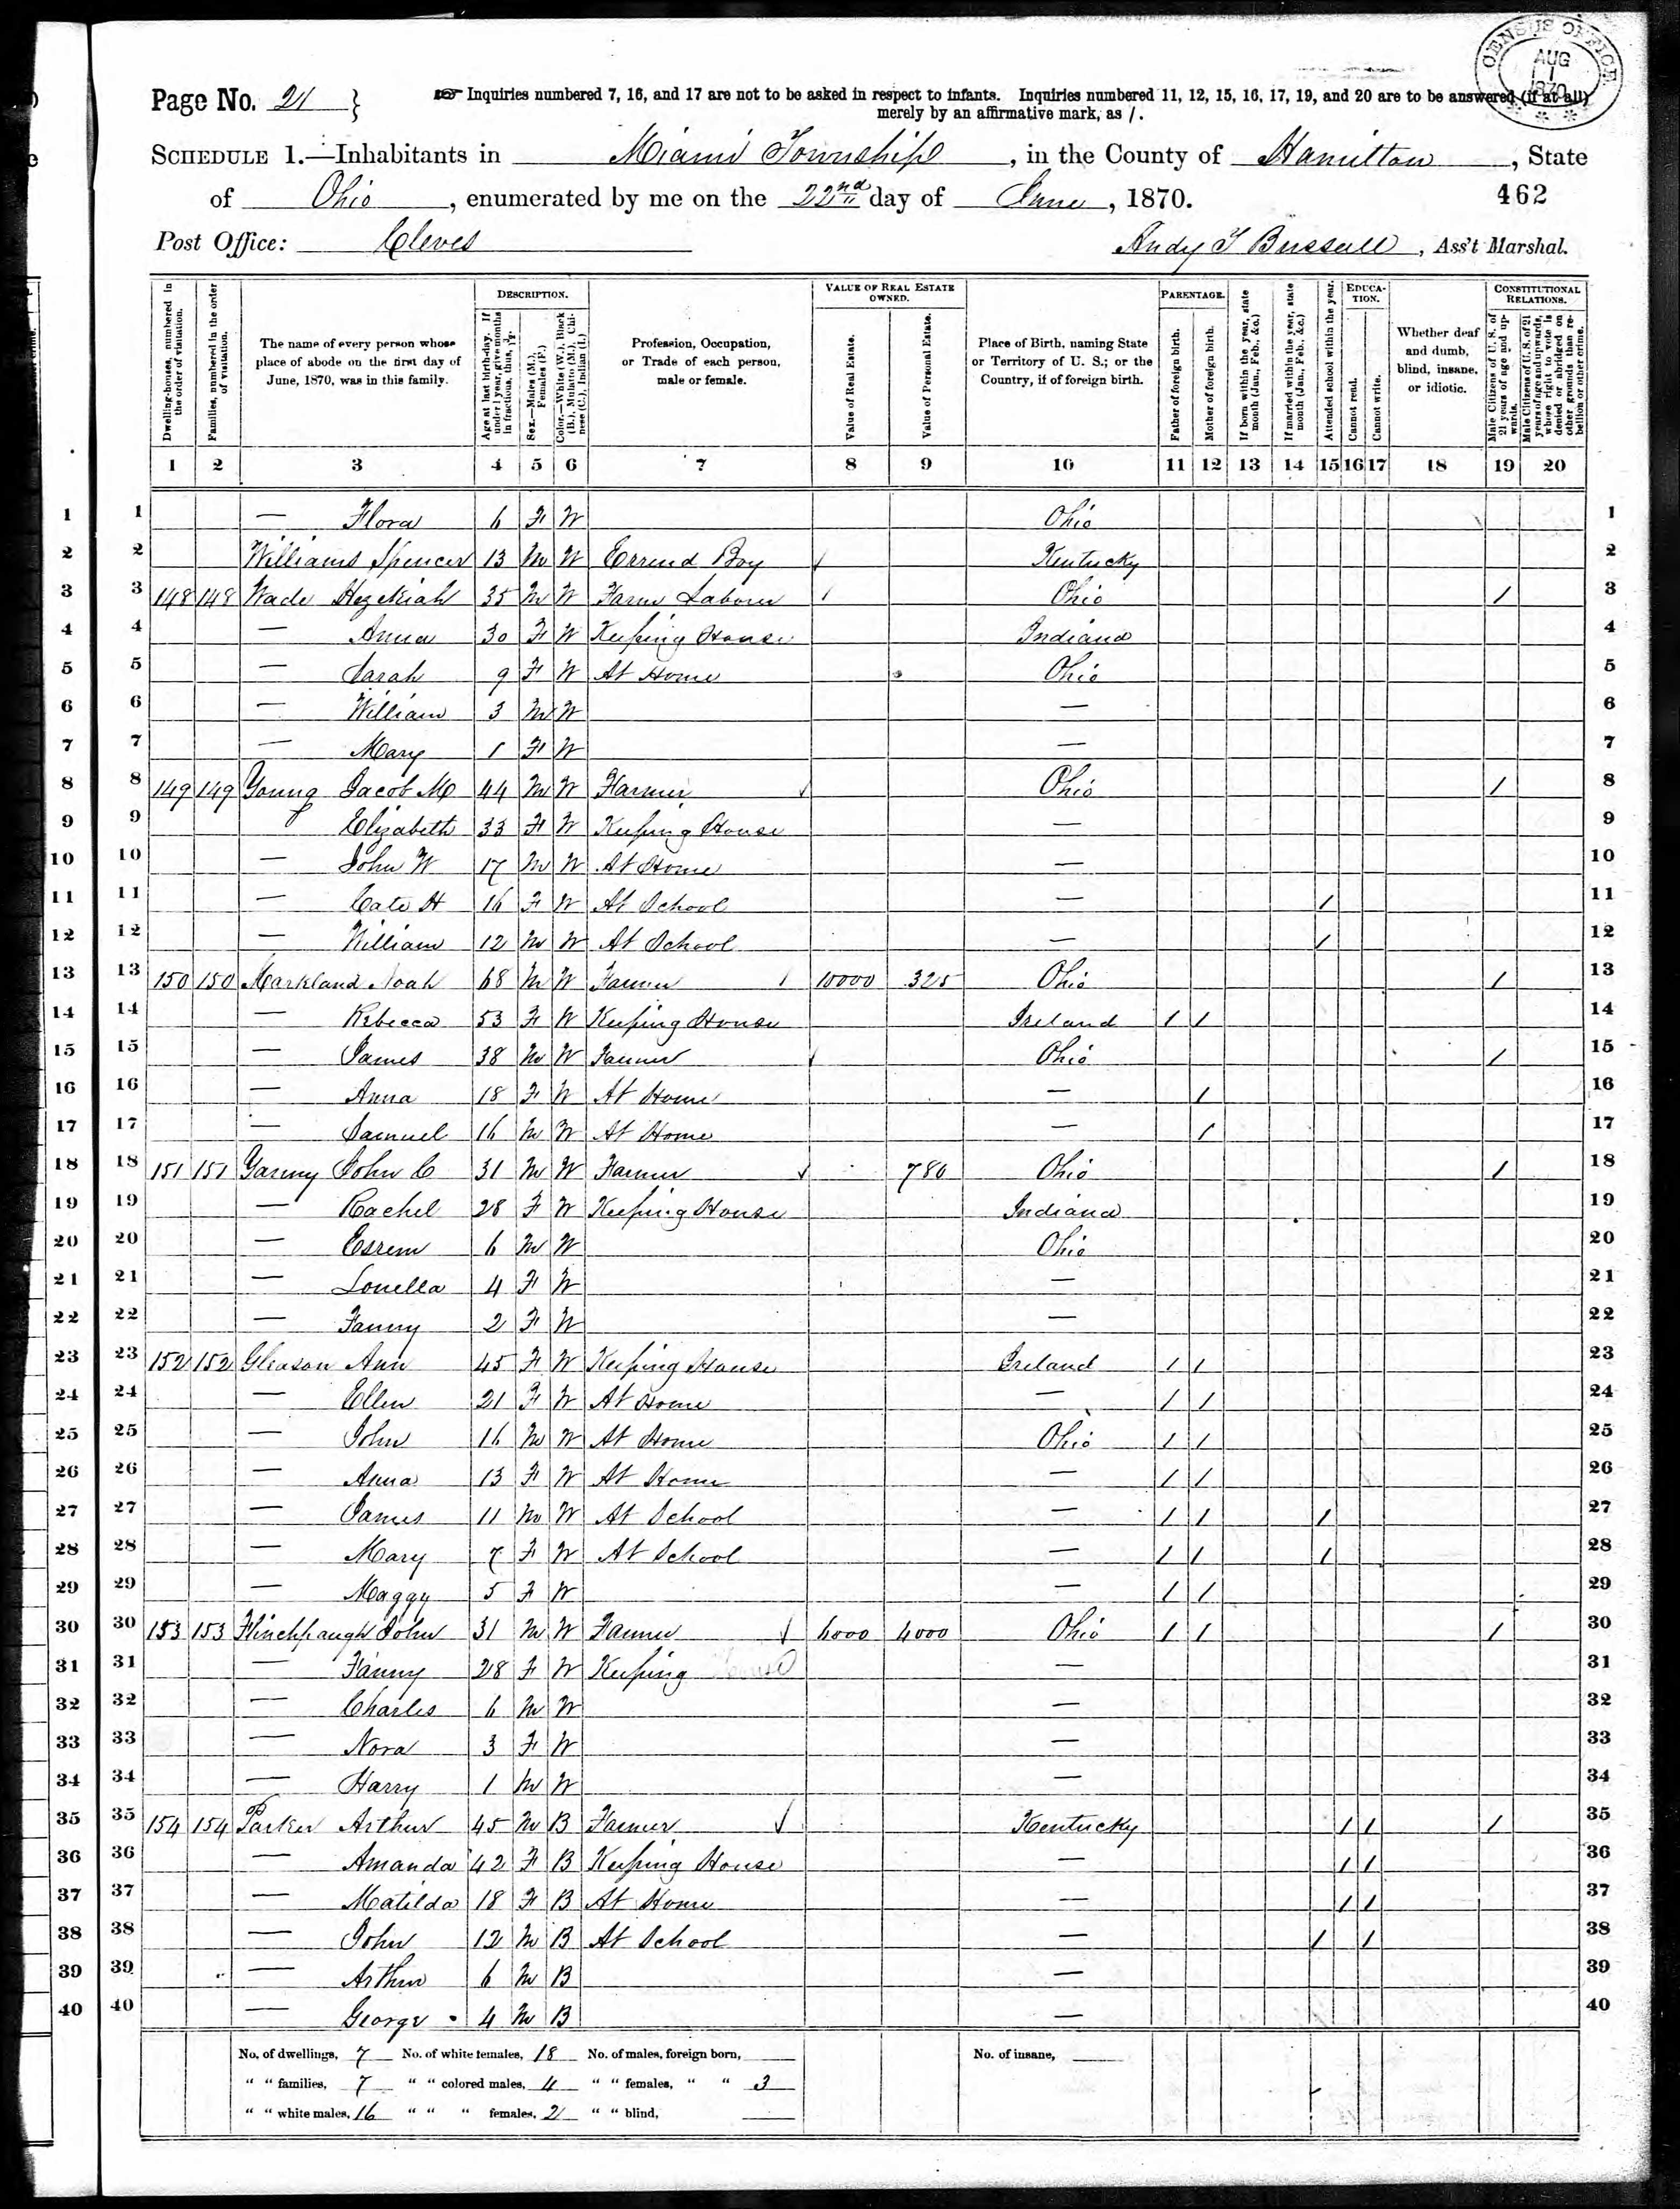 CENSUS OFFICE
AUG
1
1870
Page No. 21 } ☞ Inquiries numbered 7, 16, and 17 are not to be asked in respect to infants. Inquiries numbered 11, 12, 15, 16, 17, 19, and 20 are to be answered (if at all)
merely by an affirmative mark, as /.
SCHEDULE 1.—Inhabitants in Miami Township, in the County of Hamilton, State
of Ohio, enumerated by me on the 22nd day of June, 1870. 462
Post Office: Cleves Andy T Bussell, Ass't Marshal.
DESCRIPTION. VALUE OF REAL ESTATE OWNED. PARENTAGE. EDUCATION. CONSTITUTIONAL RELATIONS.
Dwelling-houses, numbered in the order of visitation.
Families, numbered in the order of visitation.
The name of every person whose place of abode on the first day of June, 1870, was in this family.
Age at last birth-day. If under 1 year, give months in fractions, thus, 3/12.
Sex.—Males (M.), Females (F.)
Color.—White (W.), Black (B.), Mulatto (M.), Chinese (C.), Indian (I.)
Profession, Occupation, or Trade of each person, male or female.
Value of Real Estate.
Value of Personal Estate.
Place of Birth, naming State or Territory of U. S.; or the Country, if of foreign birth.
Father of foreign birth.
Mother of foreign birth.
If born within the year, state month (Jan., Feb., &c.)
If married within the year, state month (Jan., Feb., &c.)
Attended school within the year.
Cannot read.
Cannot write.
Whether deaf and dumb, blind, insane, or idiotic.
Male Citizens of U. S. of 21 years of age and upwards.
Male Citizens of U. S. of 21 years of age and upwards, whose right to vote is denied or abridged on other grounds than rebellion or other crime.
1 2 3 4 5 6 7 8 9 10 11 12 13 14 15 16 17 18 19 20
1 1 — Flora 6 F W Ohio 1
2 2 Williams Spencer 13 M W Errend Boy Kentucky 2
3 3 148 148 Wade Hezekiah 35 M W Farm Laborer Ohio / 3
4 4 — Anna 30 F W Keeping House Indiana 4
5 5 — Sarah 9 F W At Home Ohio 5
6 6 — William 3 M W — 6
7 7 — Mary 1 F W — 7
8 8 149 149 Young Jacob M 44 M W Farmer Ohio / 8
9 9 Elizabeth 33 F W Keeping House — 9
10 10 — John W 17 M W At Home — 10
11 11 — Cate H 16 F W At School — / 11
12 12 — William 12 M W At School — / 12
13 13 150 150 Markland Noah 68 M W Farmer 10000 325 Ohio / 13
14 14 — Rebecca 53 F W Keeping House Ireland / / 14
15 15 — James 38 M W Farmer Ohio / 15
16 16 — Anna 18 F W At Home — / 16
17 17 — Samuel 16 M W At Home — / 17
18 18 151 151 John C 31 M W Farmer 780 Ohio / 18
19 19 — Rachel 28 F W Keeping House Indiana 19
20 20 — 6 M W Ohio 20
21 21 — Louella 4 F W — 21
22 22 — Fanny 2 F W — 22
23 23 152 152 Gleason Ann 45 F W Keeping House Ireland / / 23
24 24 — Ellen 21 F W At Home — / / 24
25 25 — John 16 M W At Home Ohio / / 25
26 26 — Anna 13 F W At Home — / / 26
27 27 — James 11 M W At School — / / / 27
28 28 — Mary 7 F W At School — / / / 28
29 29 — Maggy 5 F W — / / 29
30 30 153 153 Flinchpaugh John 31 M W Farmer 6000 4000 Ohio / / / 30
31 31 — Fanny 28 F W Keeping House — 31
32 32 — Charles 6 M W — 32
33 33 — Nora 3 F W — 33
34 34 — Harry 1 M W — 34
35 35 154 154 Parker Arthur 45 M B Farmer Kentucky / / / 35
36 36 — Amanda 42 F B Keeping House — / / 36
37 37 — Matilda 18 F B At Home — / / 37
38 38 — John 12 M B At School — / / 38
39 39 — Arthur 6 M B — 39
40 40 — George 4 M B — 40
No. of dwellings, 7 No. of white females, 18 No. of males, foreign born, No. of insane,
" " families, 7 " " colored males, 4 " " females, " " 3
" " white males, 16 " " " females, 2 " " blind,